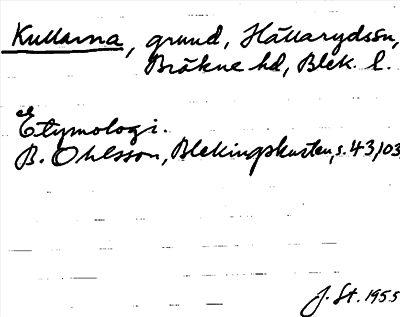 Kullarna, grund, Hällarydssn,
Bräkne hd, Blek. l.
Etymologi.
B. Ohlsson, Blekingskusten, s. 43, 103
J. St. 1955